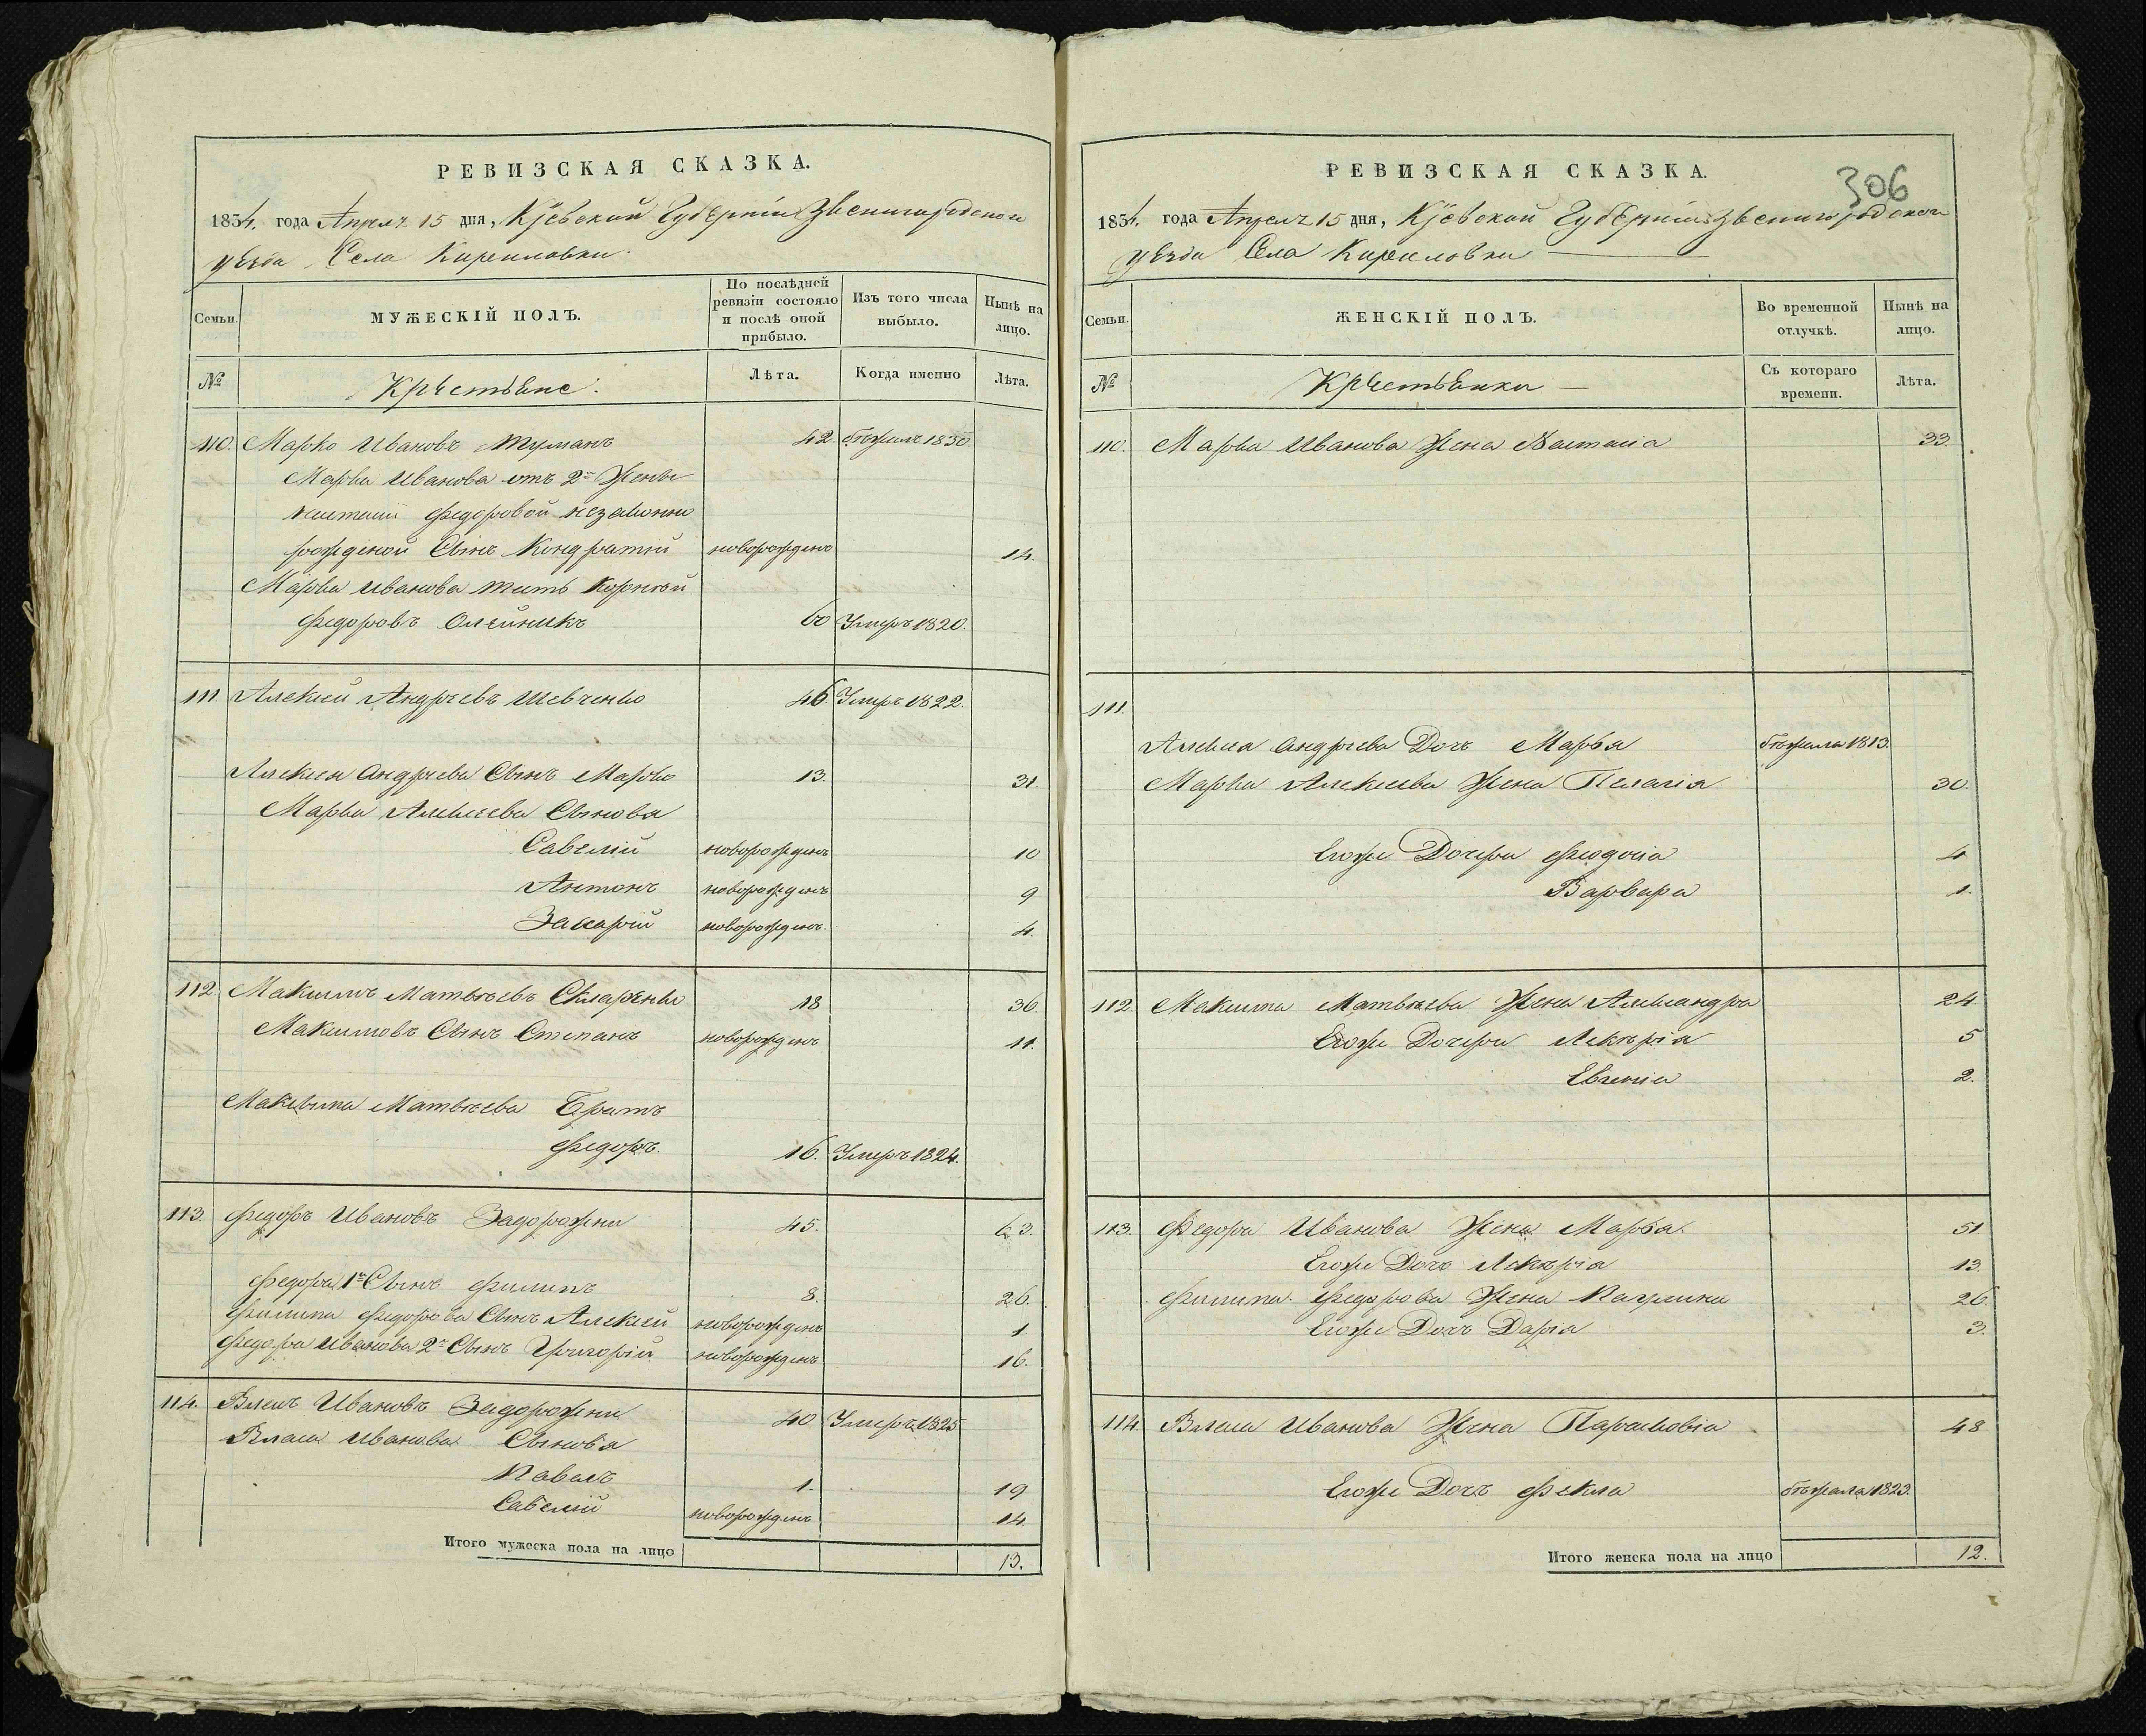 РЕВИЗСКАЯ СКАЗКА.
1834. года Апрелѣ 15 дня, Кіевской Губерніи Звенигородского
уезда Села Кириловки
Семьи.
МУЖЕСКІЙ ПОЛЪ.
По послѣдней
ревизіи состояло
и послѣ оной
прибыло.
Изъ того числа
выбыло.
Нынѣ на
лицо.
№
Крестьяне.
Лѣта.
Когда именно
Лѣта.
110. Марко Ивановъ 42. бѣжалъ 1830.
Марка Иванова отъ 2й Жены
Федоровой незаконно
рожденой Сынъ Кондратій новорожденъ 14.
Марка Иванова Корней
Федоровъ Олейникъ 60 Умеръ 1820.
111 Алексей Андреевъ Шевченко 46. Умеръ 1822.
Алексея Андреева Сынъ Марко 13. 31.
Марка Алексеева Сыновья
Савелий новорожденъ 10
Антонъ новорожденъ 9
Захарій новорожденъ. 4.
112. Максимъ Матвѣевъ Скляренко 18 36.
Максимовъ Сынъ Степанъ новорожденъ 11.
Максима Матвѣева Братъ
Федоръ. 16. Умеръ 1824.
113. Федоръ Ивановъ Задорожни 45. 63.
Федора 1й Сынъ Филипъ 8. 26.
Филипа Федорова Сынъ Алексей новорожденъ 1
Федора Иванова 2й Сынъ Григорій новорожденъ 16.
114. Власъ Ивановъ Задорожни 40 Умеръ 1825
Власа Иванова Сыновя
Павелъ 1. 19
Савелий новорожденъ 14
Итого мужеска пола на лицо 13.
306
РЕВИЗСКАЯ СКАЗКА.
1834. года Апрелѣ 15 дня, Кіевской Губерніи Звенигородского
уезда Села Кириловки
Семьи.
ЖЕНСКІЙ ПОЛЪ.
Во временной
отлучкѣ.
Нынѣ на
лицо.
№
Крестьянки
Съ котораго
времени.
Лѣта.
110. Марка Иванова Жена Настасіа 33.
111.
Алексея Андреева Дочъ Марья бѣжала 1813.
Марка Алексеева Жена Пелагія 30.
Егоже Дочери Феодосіа 4
Варвара 1.
112. Максима Матвѣева Жена Александра 24
Егоже Дочери Лукерія 5
Евгенія 2.
113. Федора Иванова Жена Марья. 51
Егоже Дочъ Лукерія 13.
Филипа Федорова Жена 26.
Егоже Дочъ Дарія 3.
114 Власа Иванова Жена Парасковіа 48
Егоже Дочъ Фекла бѣжала 1823.
Итого женска пола на лицо 12.